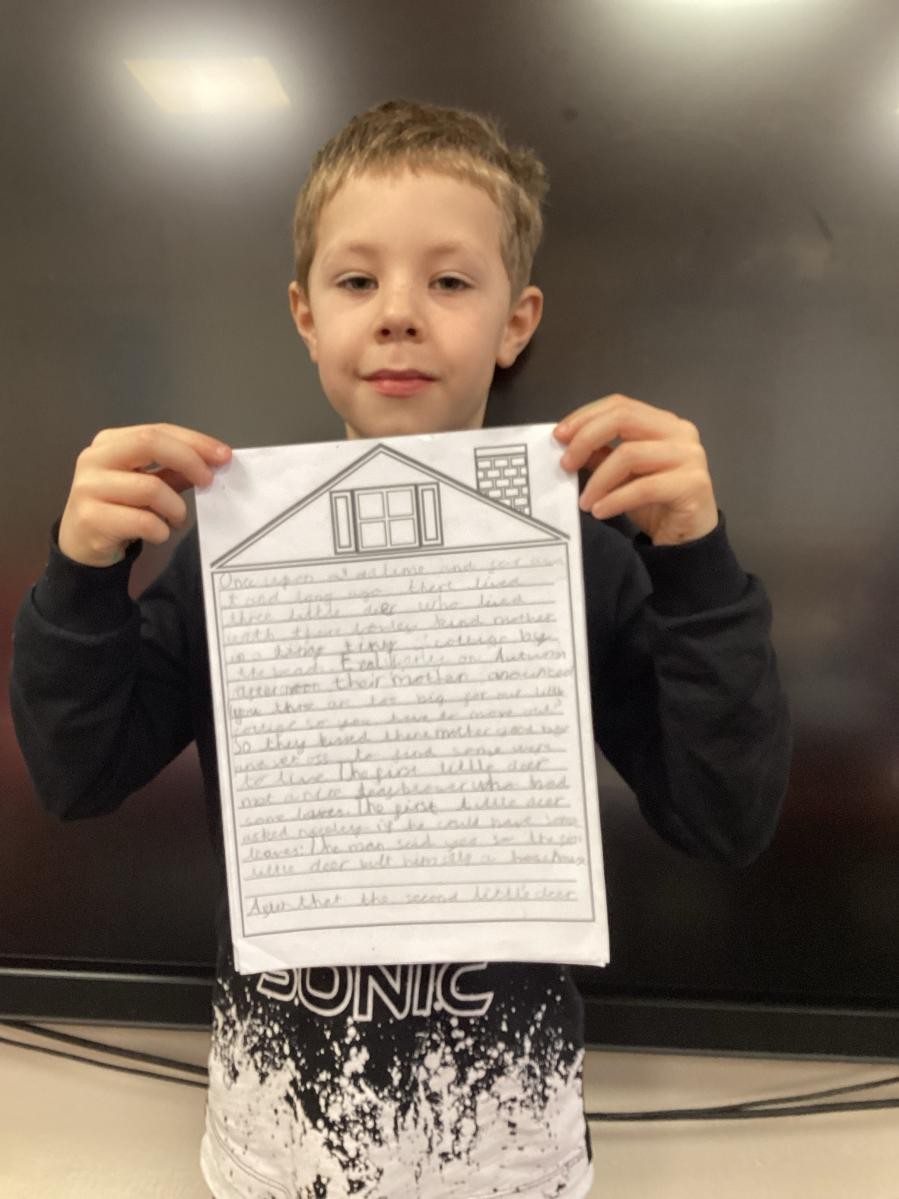 Once upon a time and far awa
y and long ago there lived
three little deer who lived
with there lovley kind mother
in a little tiny cottage by
the wood. on Autumn
afternoon their mother anounced
you three are too big for our little
cottige so you have to move out."
So they kissed there mother good bye
and set off to find some were
to live. The first little deer
met a nice who had
some leaves. The first little deer
asked if he could have some
leaves. The man said yes so the
little deer bilt himself a
After that the second little deer
SONIC